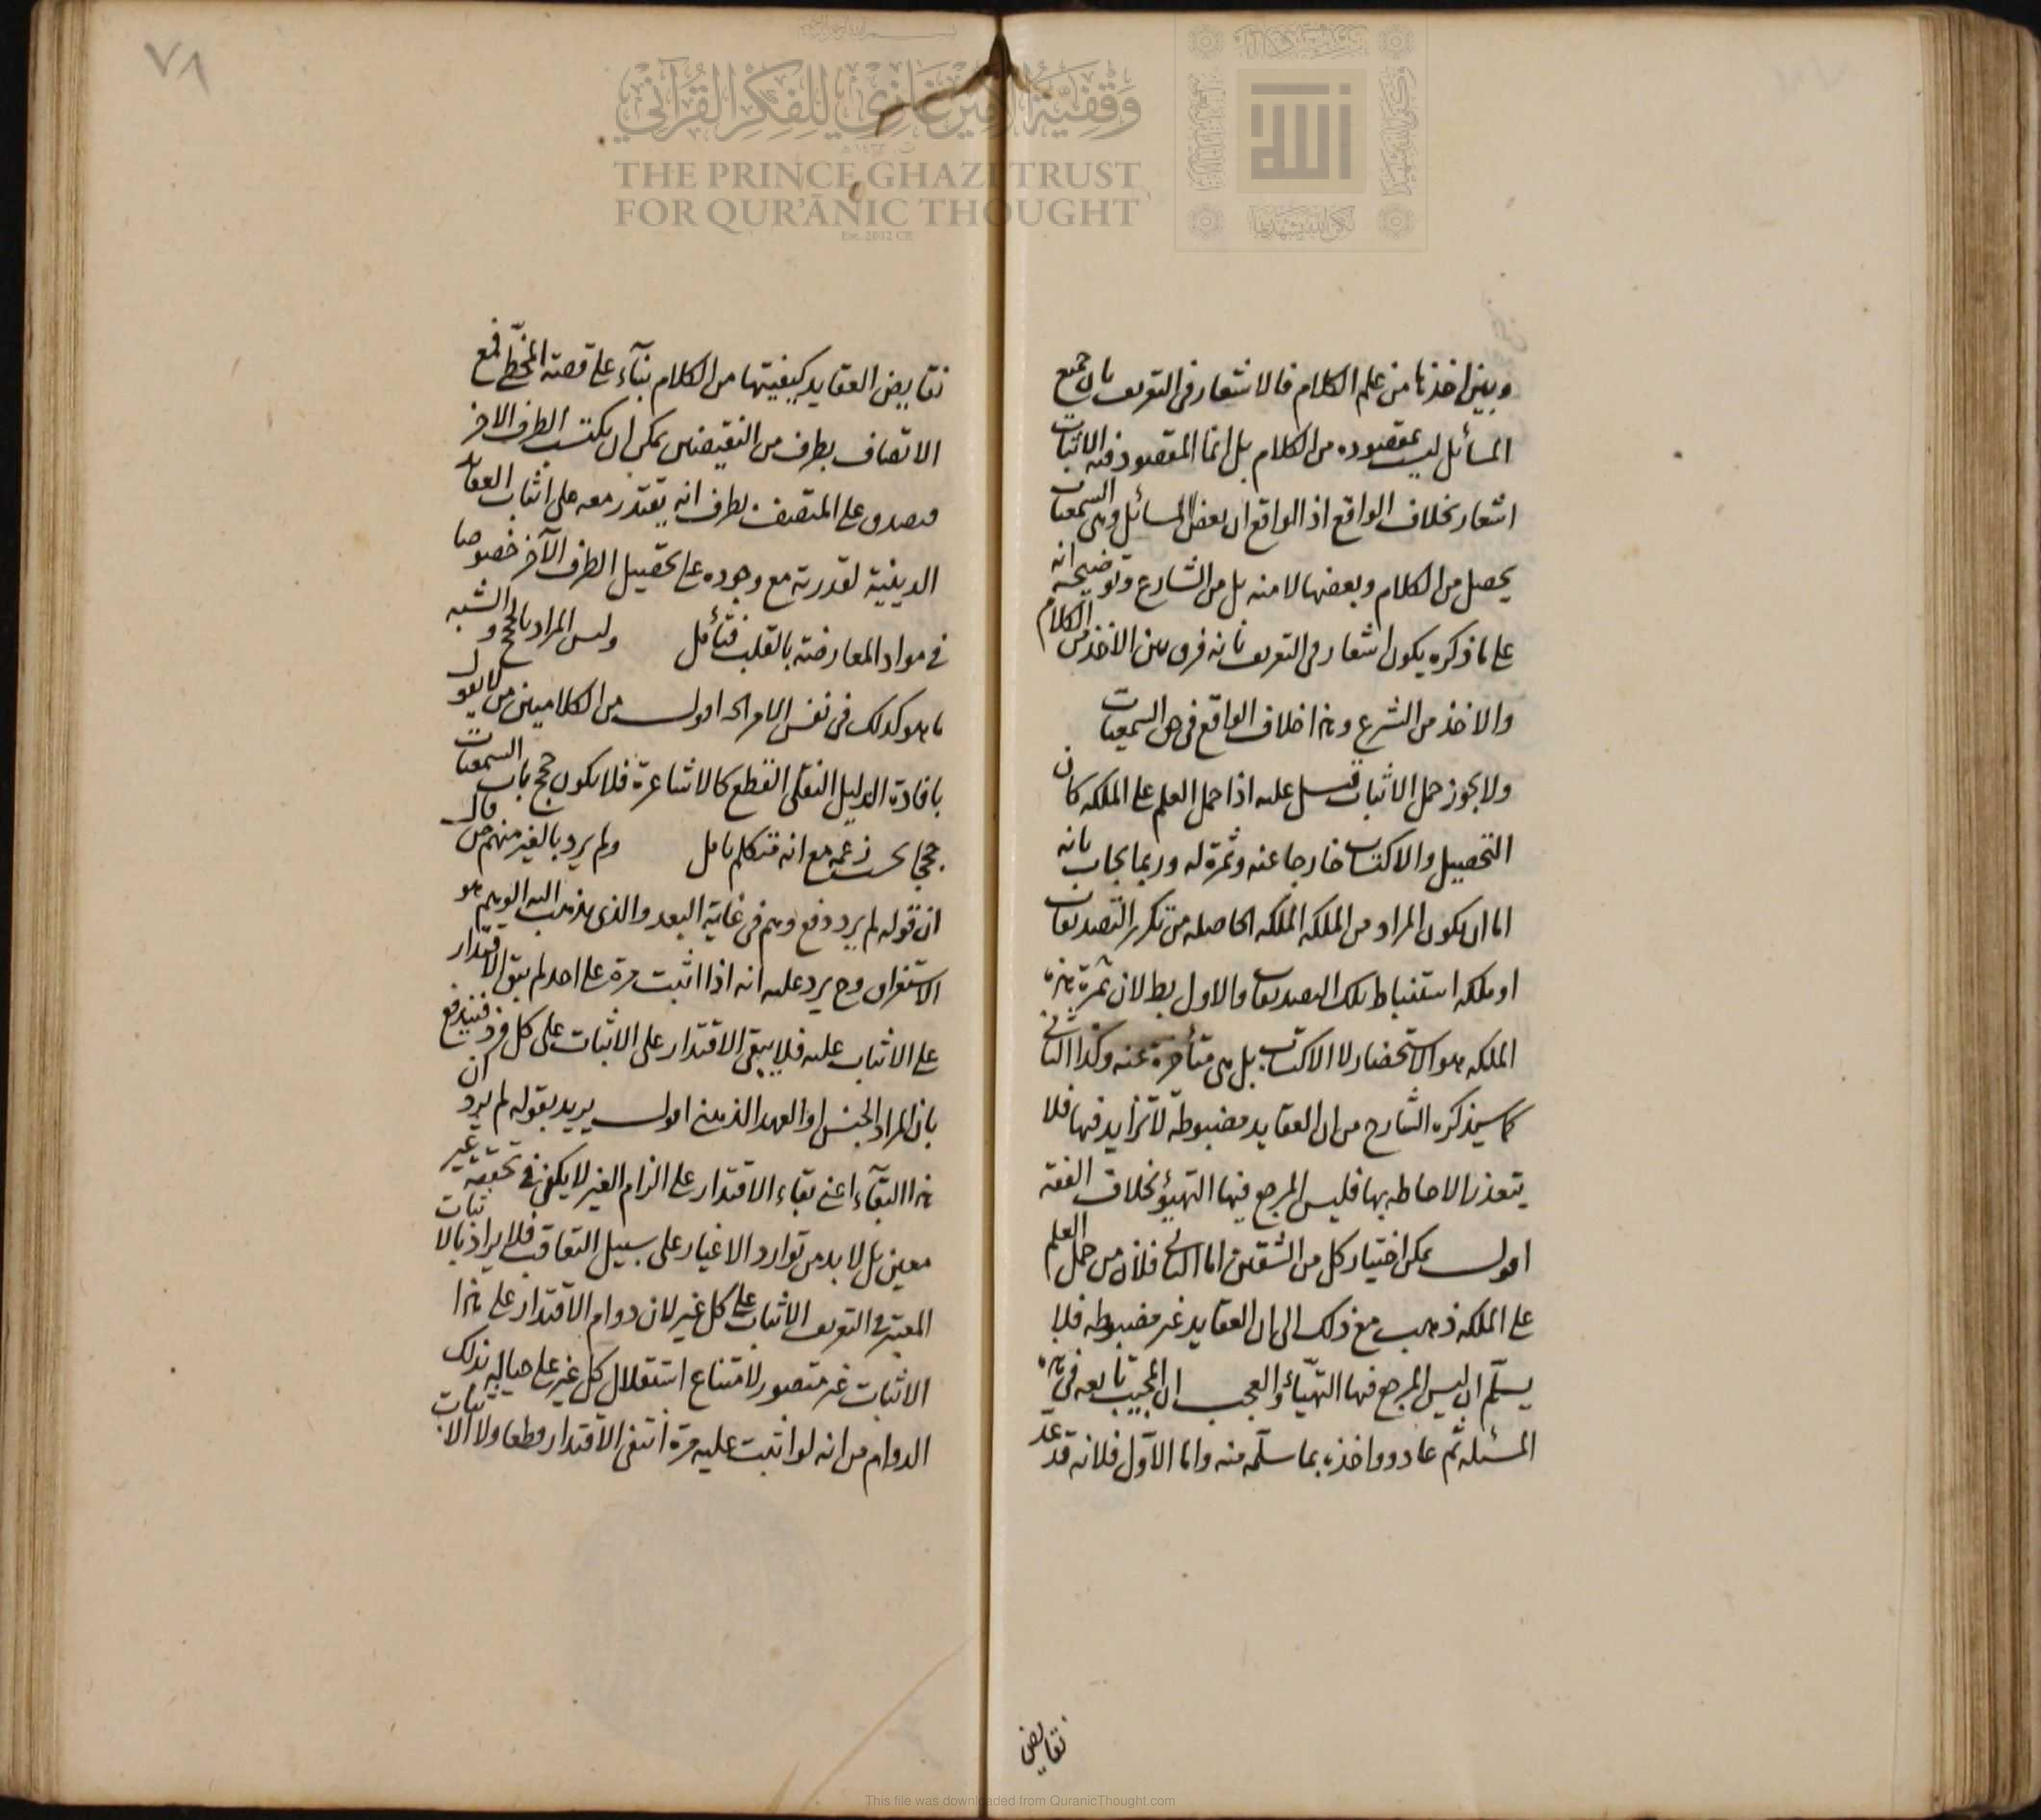 وبين اخذها من علم الكلام فالاشعار فى التعريف بان جميع
المسائل ليست بمقصوده من الكلام بل انما المقصود منه الاثبات
اشعار بخلاف الواقع اذ الواقع ان بعض المسائل وهى السمعيات
يحصل من الكلام وبعضها لا منه بل من الشارع وتوضيحه انه
على ما ذكره يكون اشعار فى التعريف بانه فرق بين الاخذ من الكلام
والاخذ من الشرع وهذا خلاف الواقع فى هى السمعيات
ولا يجوز حمل الاثبات قيل عليه اذا حمل العلم على الملكه كان
التحصيل والاكتساب خارجا عنه وثمرة له وربما يجاب بانه
اما ان يكون المراد من الملكه الملكه الحاصله من تكرر التصديقات
او ملكه استنباط تلك التصديقات والاول بط لان ثمرة هذه
الملكه هو الاستحضار لا الاكتساب بل هى متأخرة عنه وكذا الثانى
كما سيذكره الشارح من ان العقايد مضبوطة لا تزايد فيها فلا
يتعذر الاحاطه بها فليس المرجع فيها التهيؤ بخلاف الفقه
اقول يمكن اختيار كل من الشقين اما الثانى فلان من حمل العلم
على الملكه ذهب مع ذلك الى ان العقايد غير مضبوطه فلا
يسلّم ان ليس المرجع فيها التهيّأ والعجب ان المجيب تابعه فى هذه
المسئله ثم عاد وواخذه بما سلّمه منه واما الاوّل فلانه قد عد
نقايض
٧٨
نقايض العقايد كيفيتها من الكلام بناء على قصة المخطّى فمع
الاتصاف بطرف من النقيضين يمكن ان يكتسب الطرف الاخر
فصدق على المتصف بطرف انه يقتدر معه على اثبات العقايد
الدينية لقدرته مع وجوده على تحصيل الطرف الآخر خصوصا
فى مواد المعارضة بالقلب فتأمل وليس المراد بالحجج والشبه
ما هو كذلك فى نفس الامر اه اقول من الكلاميين من لا يقول
بافادة الدليل النقلى القطع كالاشاعرة فلا يكون حجج باب السمعيات
حججا بحسب زعمه مع انه متكلم تامل ولم يرد بالغير منهم من قال
ان قوله لم يرد دفع وهم فى غاية البعد والذى يذهب اليه الوهم هو
الاستغراق وح يرد عليه انه اذا اثبت مرة على احد لم يبق الاقتدار
على الاثبات عليه فلا يبقى الاقتدار على الاثبات على كل فرد فيندفع
بان المراد الجنس او العهد الذهنى اقول يريد بقوله لم يرد ان
هذا البقآء اعنى بقاء الاقتدار على الزام الغير لا يكفى فى تحققه غير
معين بل لا بد من توارد الاغيار على سبيل التعاقب فلا يراد بالاثبات
المعتبر فى التعريف الاثبات على كل غير لان دوام الاقتدار على هذا
الاثبات غير متصور لامتناع استقلال كل غير على حياله بذلك
الدوام من انه لو اثبت عليه مرة انتفى الاقتدار قطعا ولا الاثبات
وَقْفِيَّةُ الأَمِيرِ غَازِي لِلْفِكْرِ القُرْآنِي
THE PRINCE GHAZI TRUST
FOR QUR'ĀNIC THOUGHT
Est. 2012 CE
This file was downloaded from QuranicThought.com